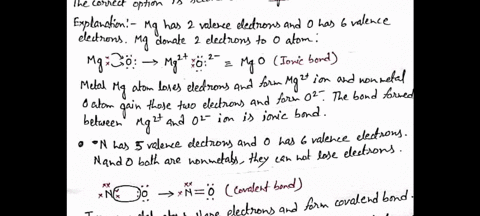 The correct option is
Explanation:- Mg has 2 valence electrons and O has 6 valence
electrons. Mg donate 2 electrons to O atom:
Mg O: → Mg²⁺ :O:²⁻ ≡ MgO (Ionic bond)
Metal Mg atom loses electrons and form Mg²⁺ ion and nonmetal
O atom gain those two electrons and form O²⁻. The bond formed
between Mg²⁺ and O²⁻ ion is ionic bond.
• N has 5 valence electrons and O has 6 valence electrons.
N and O both are nonmetals, they can not lose electrons.
N O: → N=O: (Covalent bond)
electrons and form covalend bond.